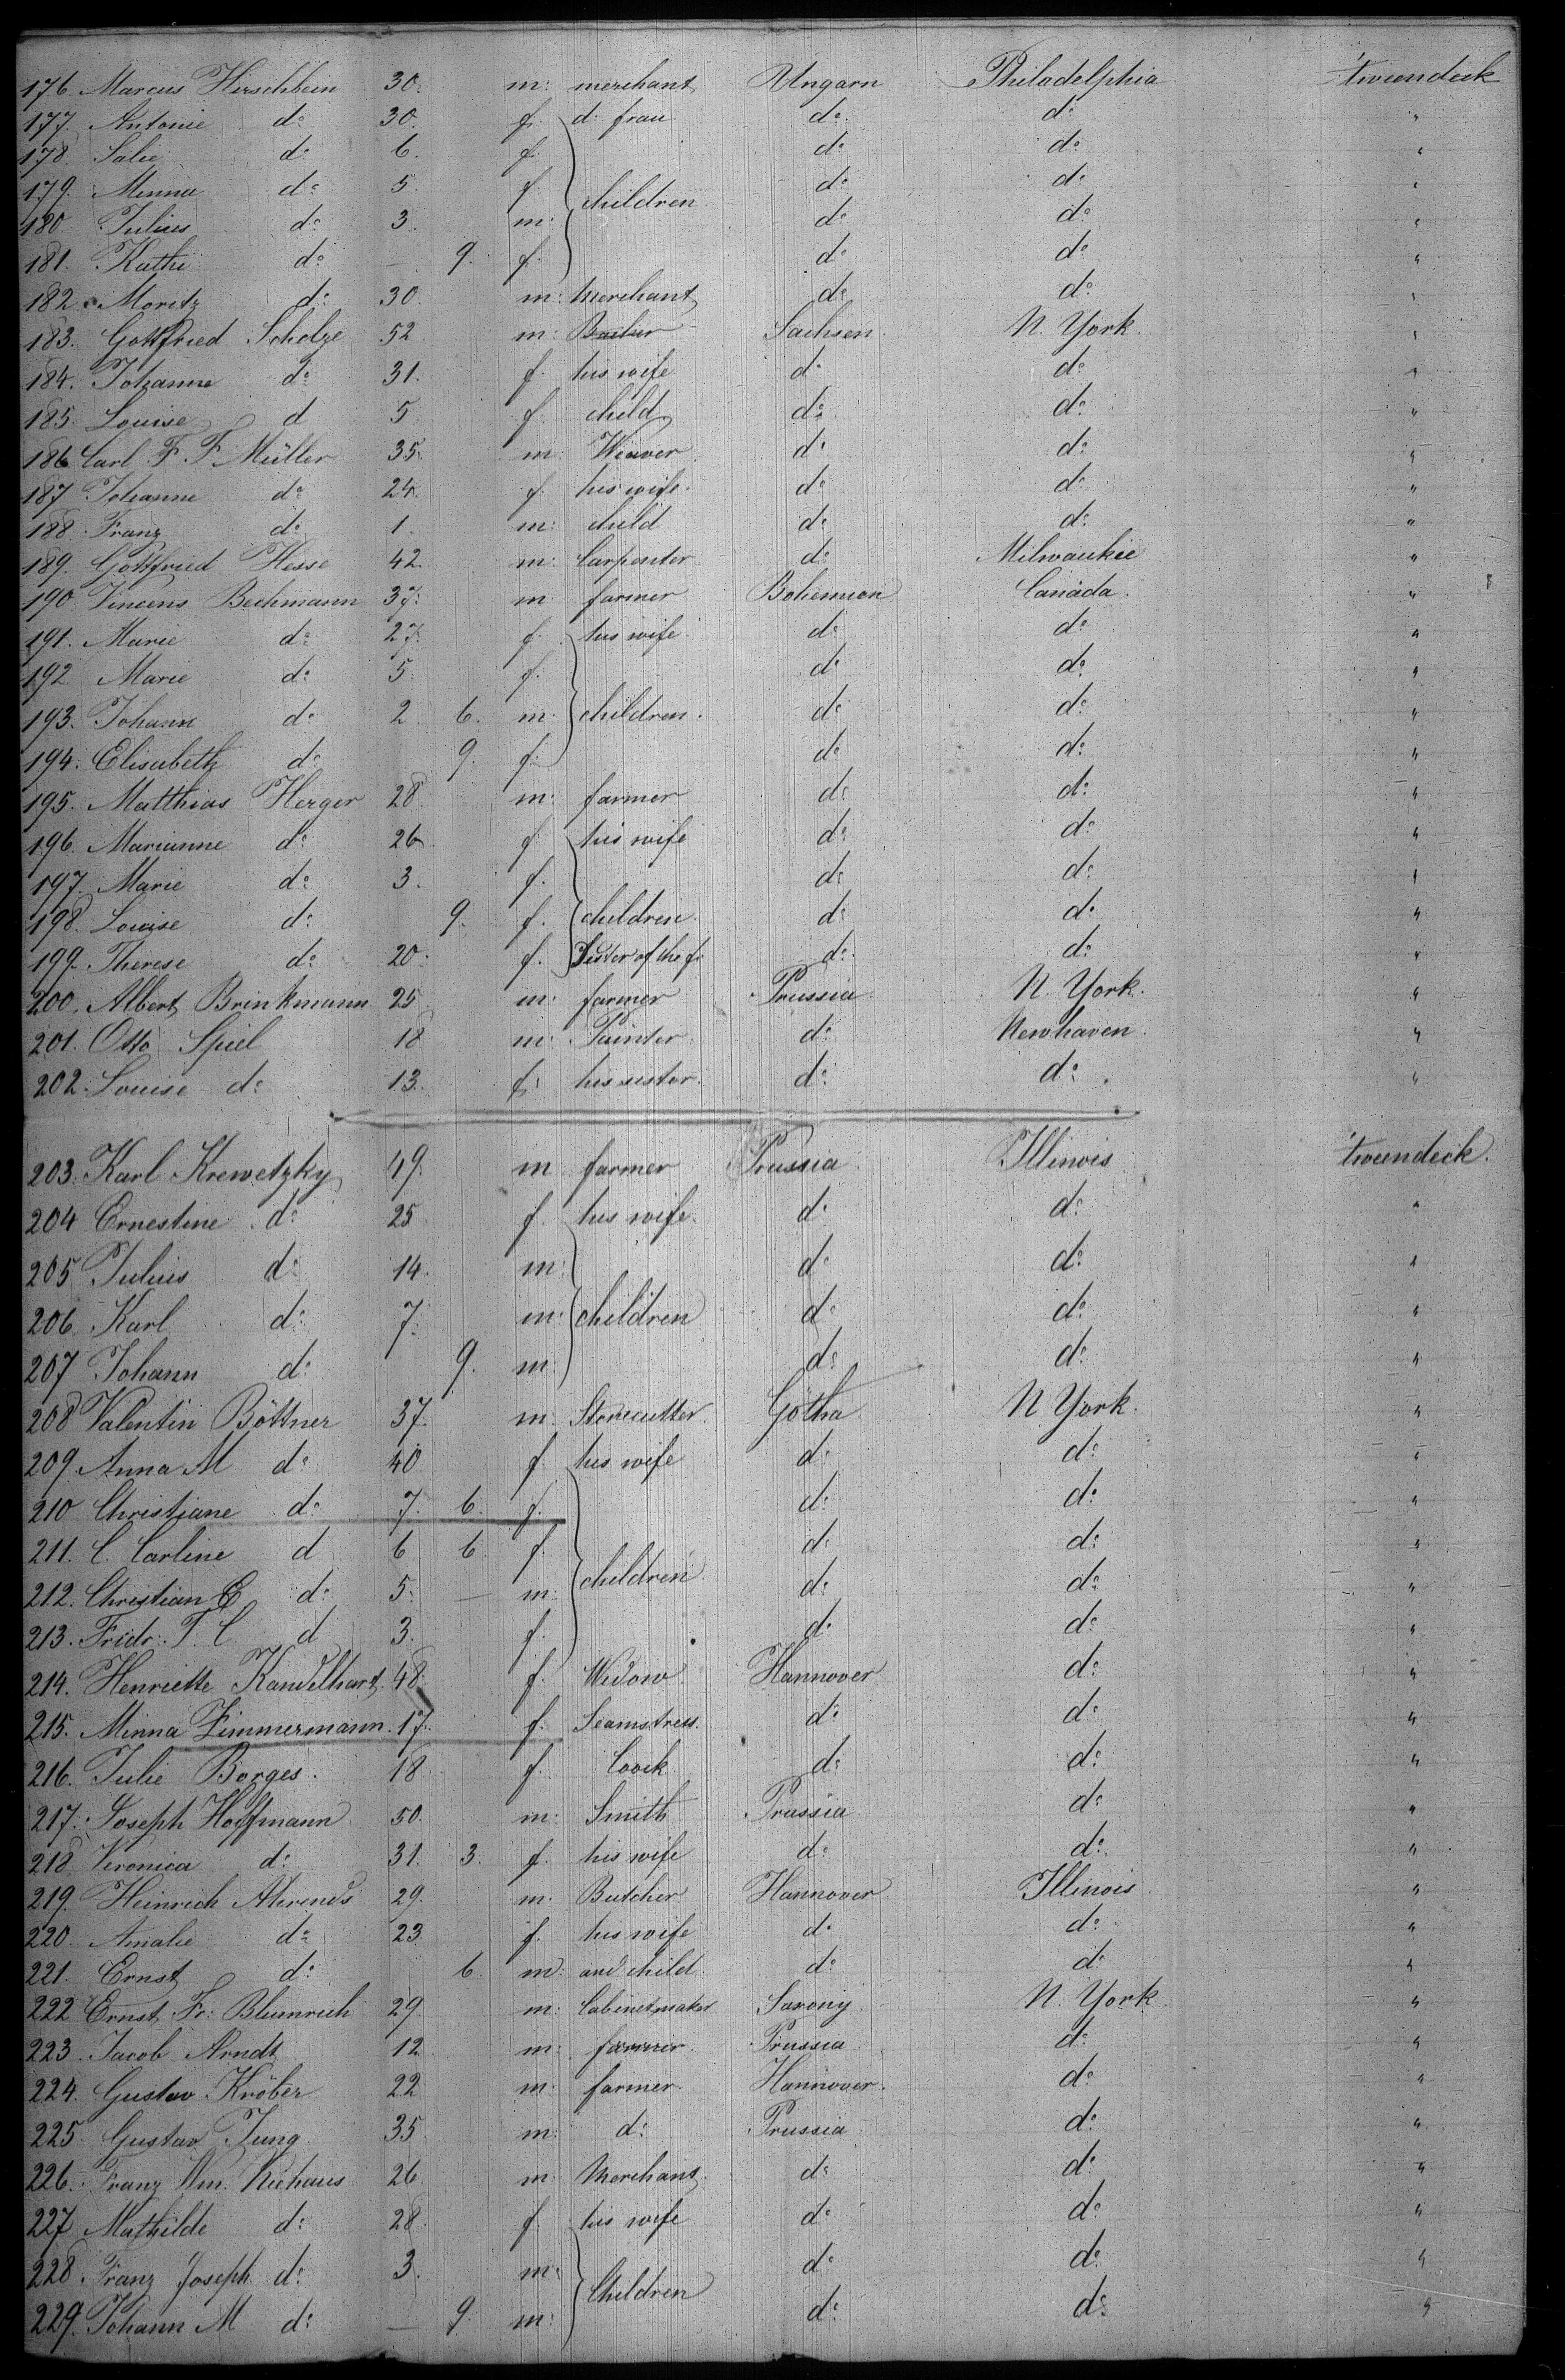 176. Marcus Hirschbein 30. m: merchant Ungarn Philadelphia tweendeck
177. Antonie do 30. f. d: frau do do "
178. Salie do 6. f. do do "
179. Minna do 5. f. children do do "
180. Julius do 3. m: do do "
181. Kathi do — 9. f. do do "
182. Moritz do 30. m: merchant do do "
183. Gottfried Scholze 52 m: Sachsen N. York. "
184. Johanne do 31. f. his wife do do "
185. Louise d 5 f. child do do "
186 Carl F. F. Müller 35. m: Weaver do do "
187 Johanne do 24. f. his wife. do do "
188. Franz do 1. m: child do do "
189. Gottfried Hesse 42. m: Carpenter do Milwaukie "
190 Vincens Bechmann 37. m farmer Bohemion Canada. "
191. Marie do 27. f. his wife do do "
192 Marie do 5. f. do do "
193. Johann do 2 6. m: children. do do "
194. Elisabeth do 9. f. do do "
195. Matthias Herger 28. m: farmer do do "
196. Marianne do 26. f his wife do do "
197. Marie do 3. f. do do "
198. Louise do 9. f. children do do "
199. Therese do 20. f. Sister of the fr. do do "
200. Albert Brinkmann 25 m: farmer Prussia N. York. "
201. Otto Spiel 18 m: Painter do Newhaven. "
202. Louise do 13. f. his sister. do do "
203. Karl Krewetzky 49. m farmer Prussia Illinois tweendeck.
204 Ernestine do 25 f. his wife. do do "
205 Julius do 14. m: do do "
206. Karl do 7. m: children do do "
207 Johann do 9. m: do do "
208 Valentin Böttner 37. m: Stonecutter. Gotha N York. "
209. Anna M do 40 f his wife do do "
210 Christiane do 7. 6. f. do do "
211. C. Carline d 6 6 f. do do "
212. Christian E do 5. — m: children do do "
213. Fridr. T. C d 3. f. do do "
214. Henriette Kandelhart 48. f. Widow. Hannover do "
215. Minna Zimmermann. 17. f. Seamstress. do do "
216. Julie Borges. 18 f. Cook do do "
217. Joseph Hoffmann 50. m: Smith Prussia do "
218 Veronica do 31. 3. f. his wife do do "
219. Heinrich Ahrends 29. m: Butcher Hannover Illinois "
220. Amalie do 23. f. his wife do do "
221. Ernst do 6 m: and child. do do "
222 Ernst Fr: Blumrich 29. m: Cabinetmaker Saxony N. York. "
223. Jacob Arndt 12 m: farmer. Prussia do "
224. Gustav Kröber 22 m: farmer. Hannover. do "
225 Gustav Jung 35. m: do Prussia do "
226. Franz Wm. Niehaus 26 m. Merchant. do do "
227 Mathilde do 28. f. his wife do do "
228. Franz Joseph do 3. m: do do "
229. Johann M do — 9. m: Children do do "